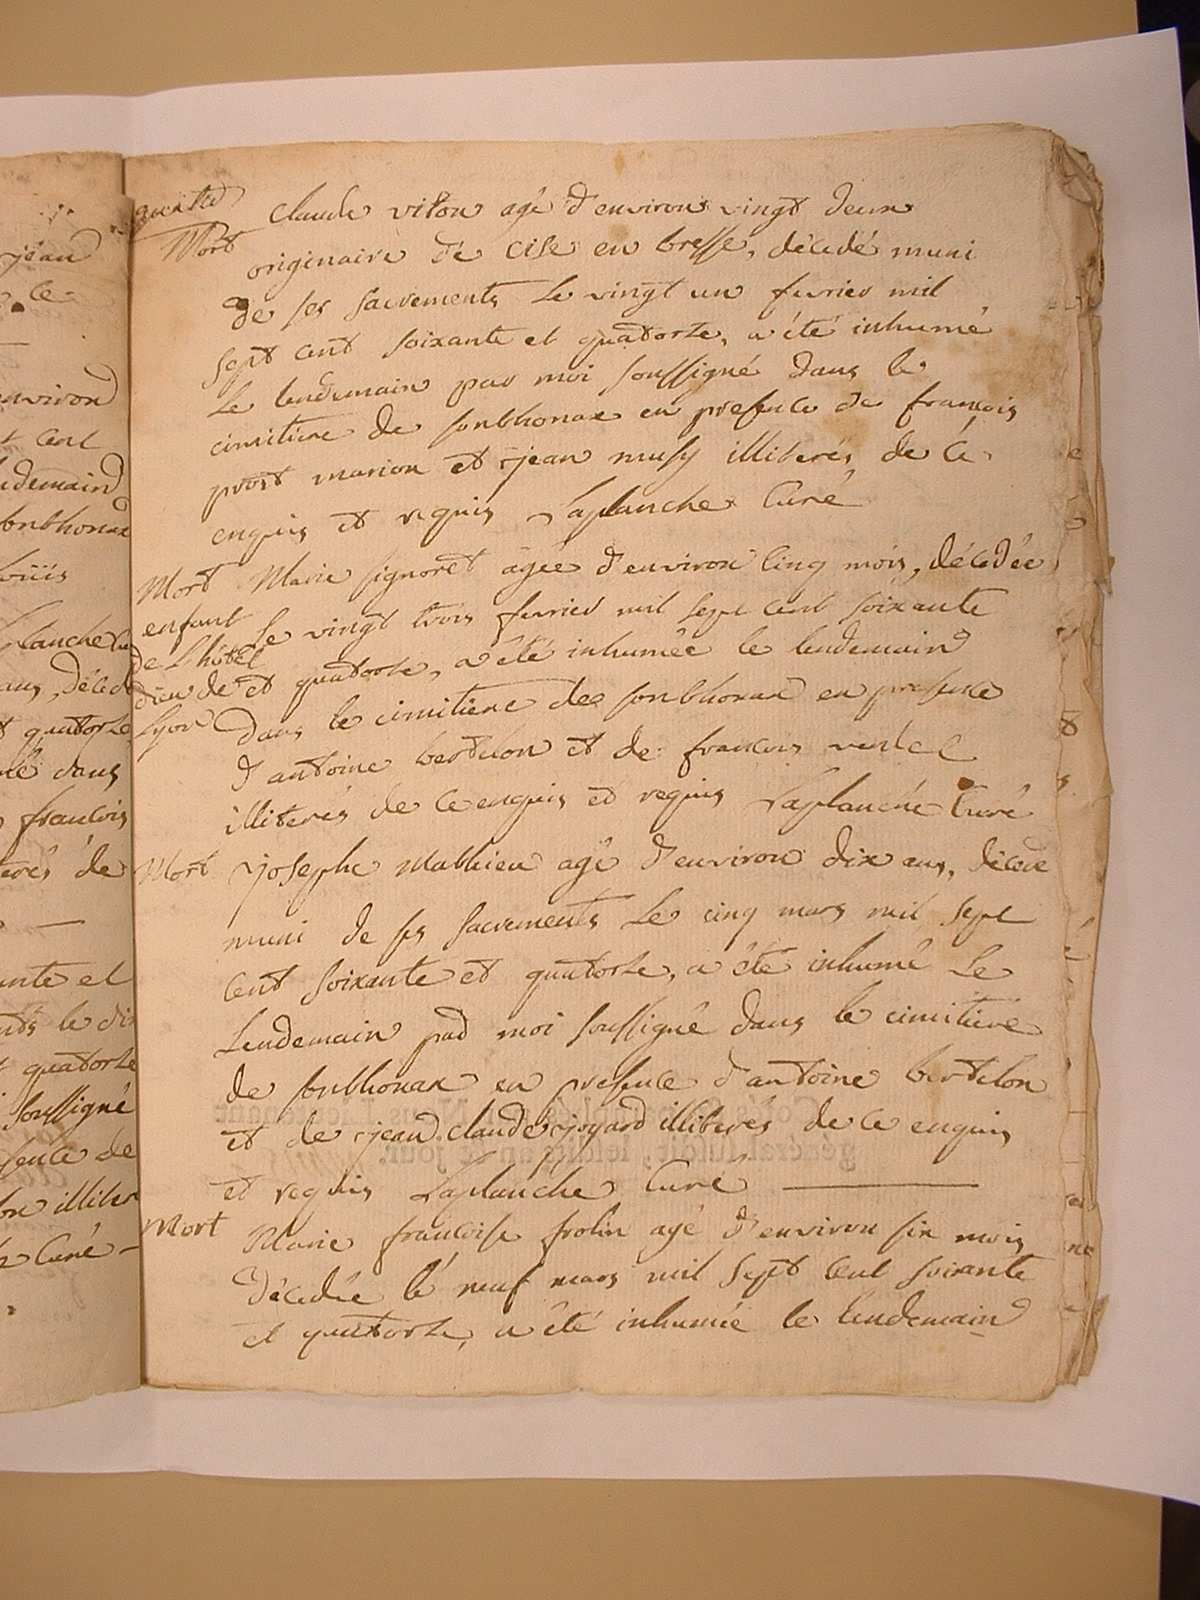 Mort
Claude viton agé d'environ vingt deux
originaire de cise en bresse, décedé muni
de ses sacrements le vingt un fevrier mil
sept cent soixante et quatorze, a été inhumé
le lendemain par moi soussigné dans le
cimitiere de sonthonax en presence de francois
prost marion et jean musy illiterés de ce
enquis et requis Laplanche Curé
Mort
enfant
de L'hôtel
dieu de
Lyon
Marie signoret agée d'environ Cinq mois, décedée
le vingt trois fevrier mil sept cent soixante
et quatorze, a été inhumée le lendemain
dans le cimitiere de sonthonax en presence
d'antoine bertelon et de francois
illiterés de ce enquis et requis Laplanche Curé
Mort
joseph Mathieu agé d'environ dix ans, décedé
muni de ses sacrements Le cinq mars mil sept
cent soixante et quatorze, a été inhumé Le
Lendemain par moi soussigné dans le cimitiere
de sonthonax en presence d'antoine bertelon
et de jean claude joyard illiterés de ce enquis
et requis Laplanche Curé
Mort
Marie francoise frolin agé d'environ six mois
décedée le neuf mars mil sept cent soixante
et quatorze, a été inhumée le lendemain